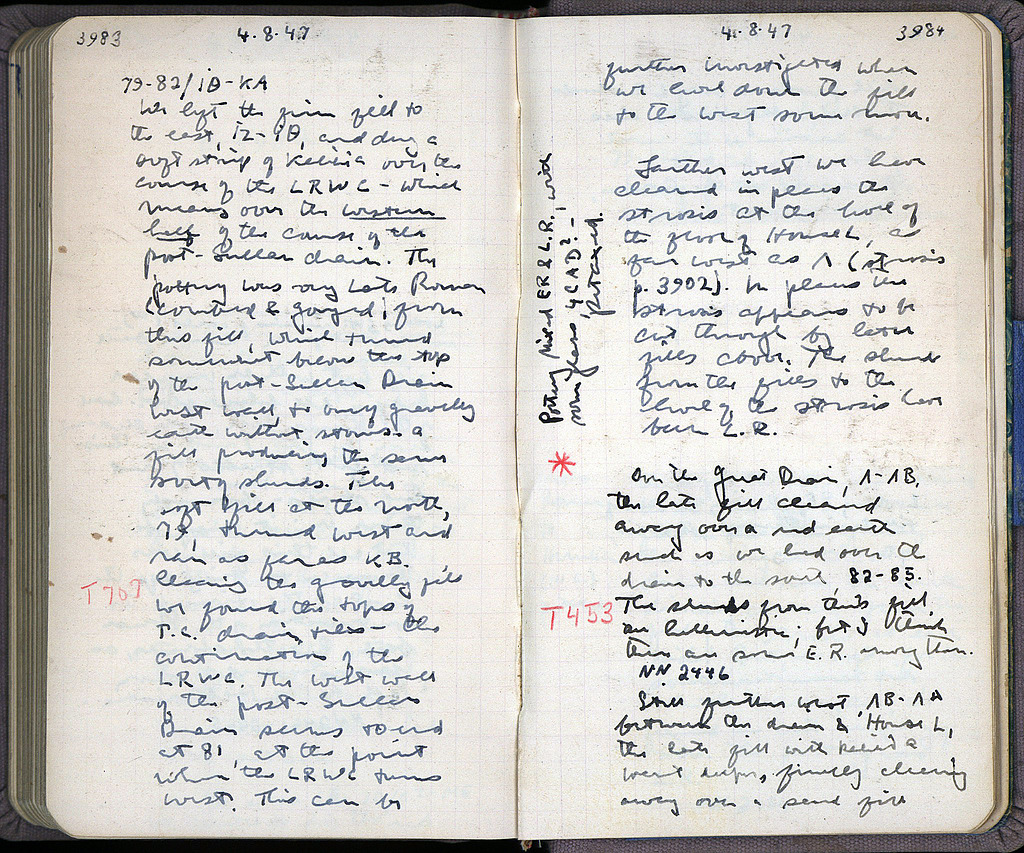 3983
4.8.47
79-82/ΙΘ-ΚΑ
We left the firm fill to
the east, ΙΖ-ΙΘ, and dug a
soft strip of over the
course of the LRWC - which
means over the western
half of the course of the
post-Sullan drain. The
pottery was very Late Roman
(combed & gouged) from
this fill, which turned
somewhat below the top
of the post-Sullan Drain
west wall, to very gravelly
earth without stones - a
fill producing the same
sorts sherds. This
soft fill at the north,
79, turned west and
ran as far as KB.
Clearing the gravelly fill
T 707
we found the tops of
T.C. drain tiles - the
continuation of the
LRWC. The west wall
of the post-Sullan
Drain seems to end
at 81, at the point
when the LRWC turns
west. This can be
4.8.47
3984
further investigated when
we have down the fill
to the west some more.
Further west we have
cleared in places the
strosis at the level of
the floor of House L, as
far west as Λ (strosis
p. 3902). In places this
strosis appears to be
cut through by later
fills above. The sherds
from the fills to the
level of the strosis have
been L.R.
Pottery mixed ER & L.R., with
some glass, 4 C AD? -
*
On the Great Drain, Λ-ΛΒ,
the late fill cleared
away over a red earth
such as we had over the
drain to the south 82-85.
T453
The sherds from this fill
are hellenistic; but I think
there are some E.R. among them.
NN 2446
Still further west, ΛΒ-ΛΔ
between the drain & House L,
the late fill with
went deeper, finally clearing
away over a sand fill